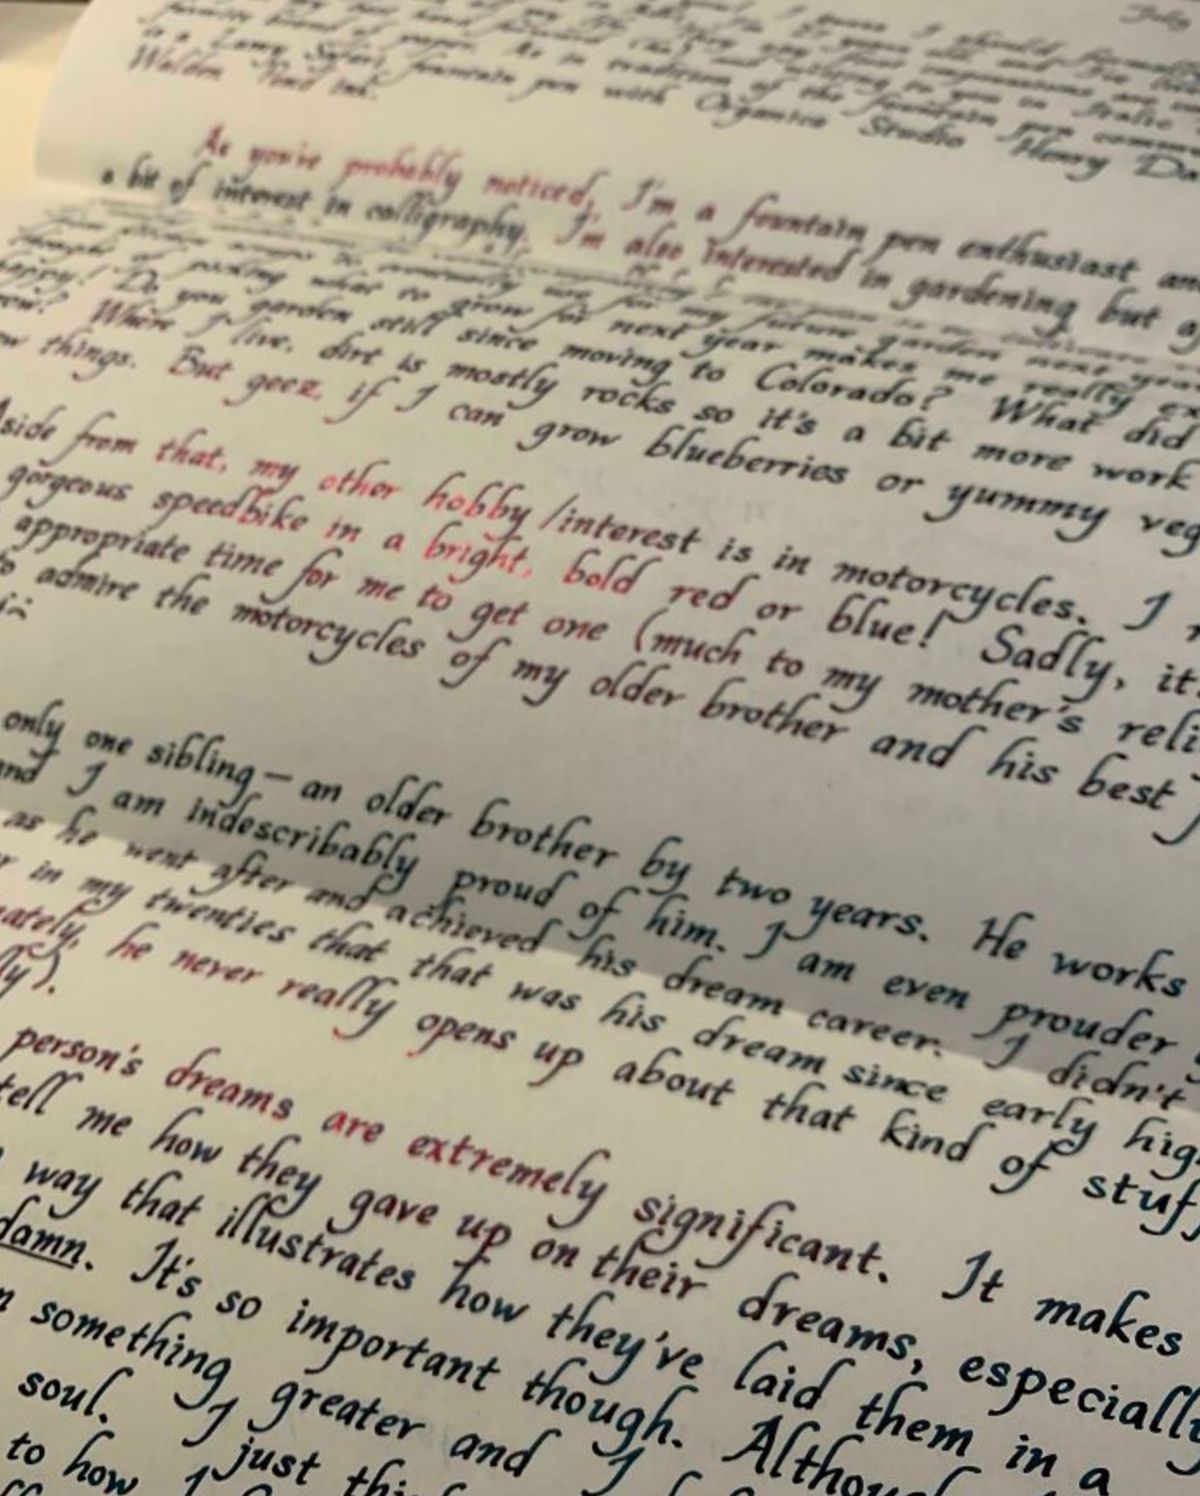 July
I guess, I should formally
favorite brand of paper. As is tradition of the fountain pen commu
is a Lamy Safari fountain pen with Organics Studio Henry Da
Walden Pond ink.
As you've probably noticed, I'm a fountain pen enthusiast an
a bit of interest in calligraphy. I'm also interested in gardening but
my future garden next year
thought of picking what to grow for next year makes me really ex
happy! Do you garden still since moving to Colorado? What did
grow? Where I live, dirt is mostly rocks so it's a bit more work
things. But geez, if I can grow blueberries or yummy veg
Aside from that, my other hobby/interest is in motorcycles. I
gorgeous speedbike in a bright, bold red or blue! Sadly, it
appropriate time for me to get one (much to my mother's reli
to admire the motorcycles of my older brother and his best f
only one sibling – an older brother by two years. He works
and I am indescribably proud of him. I am even prouder
as he went after and achieved his dream career. I didn't
in my twenties that that was his dream since early hig
nately, he never really opens up about that kind of stuf
ly).
person's dreams are extremely significant. It makes
tell me how they gave up on their dreams, especially
way that illustrates how they've laid them in a
damn. It's so important though. Althou
something greater and I
soul. I just thi
to how I